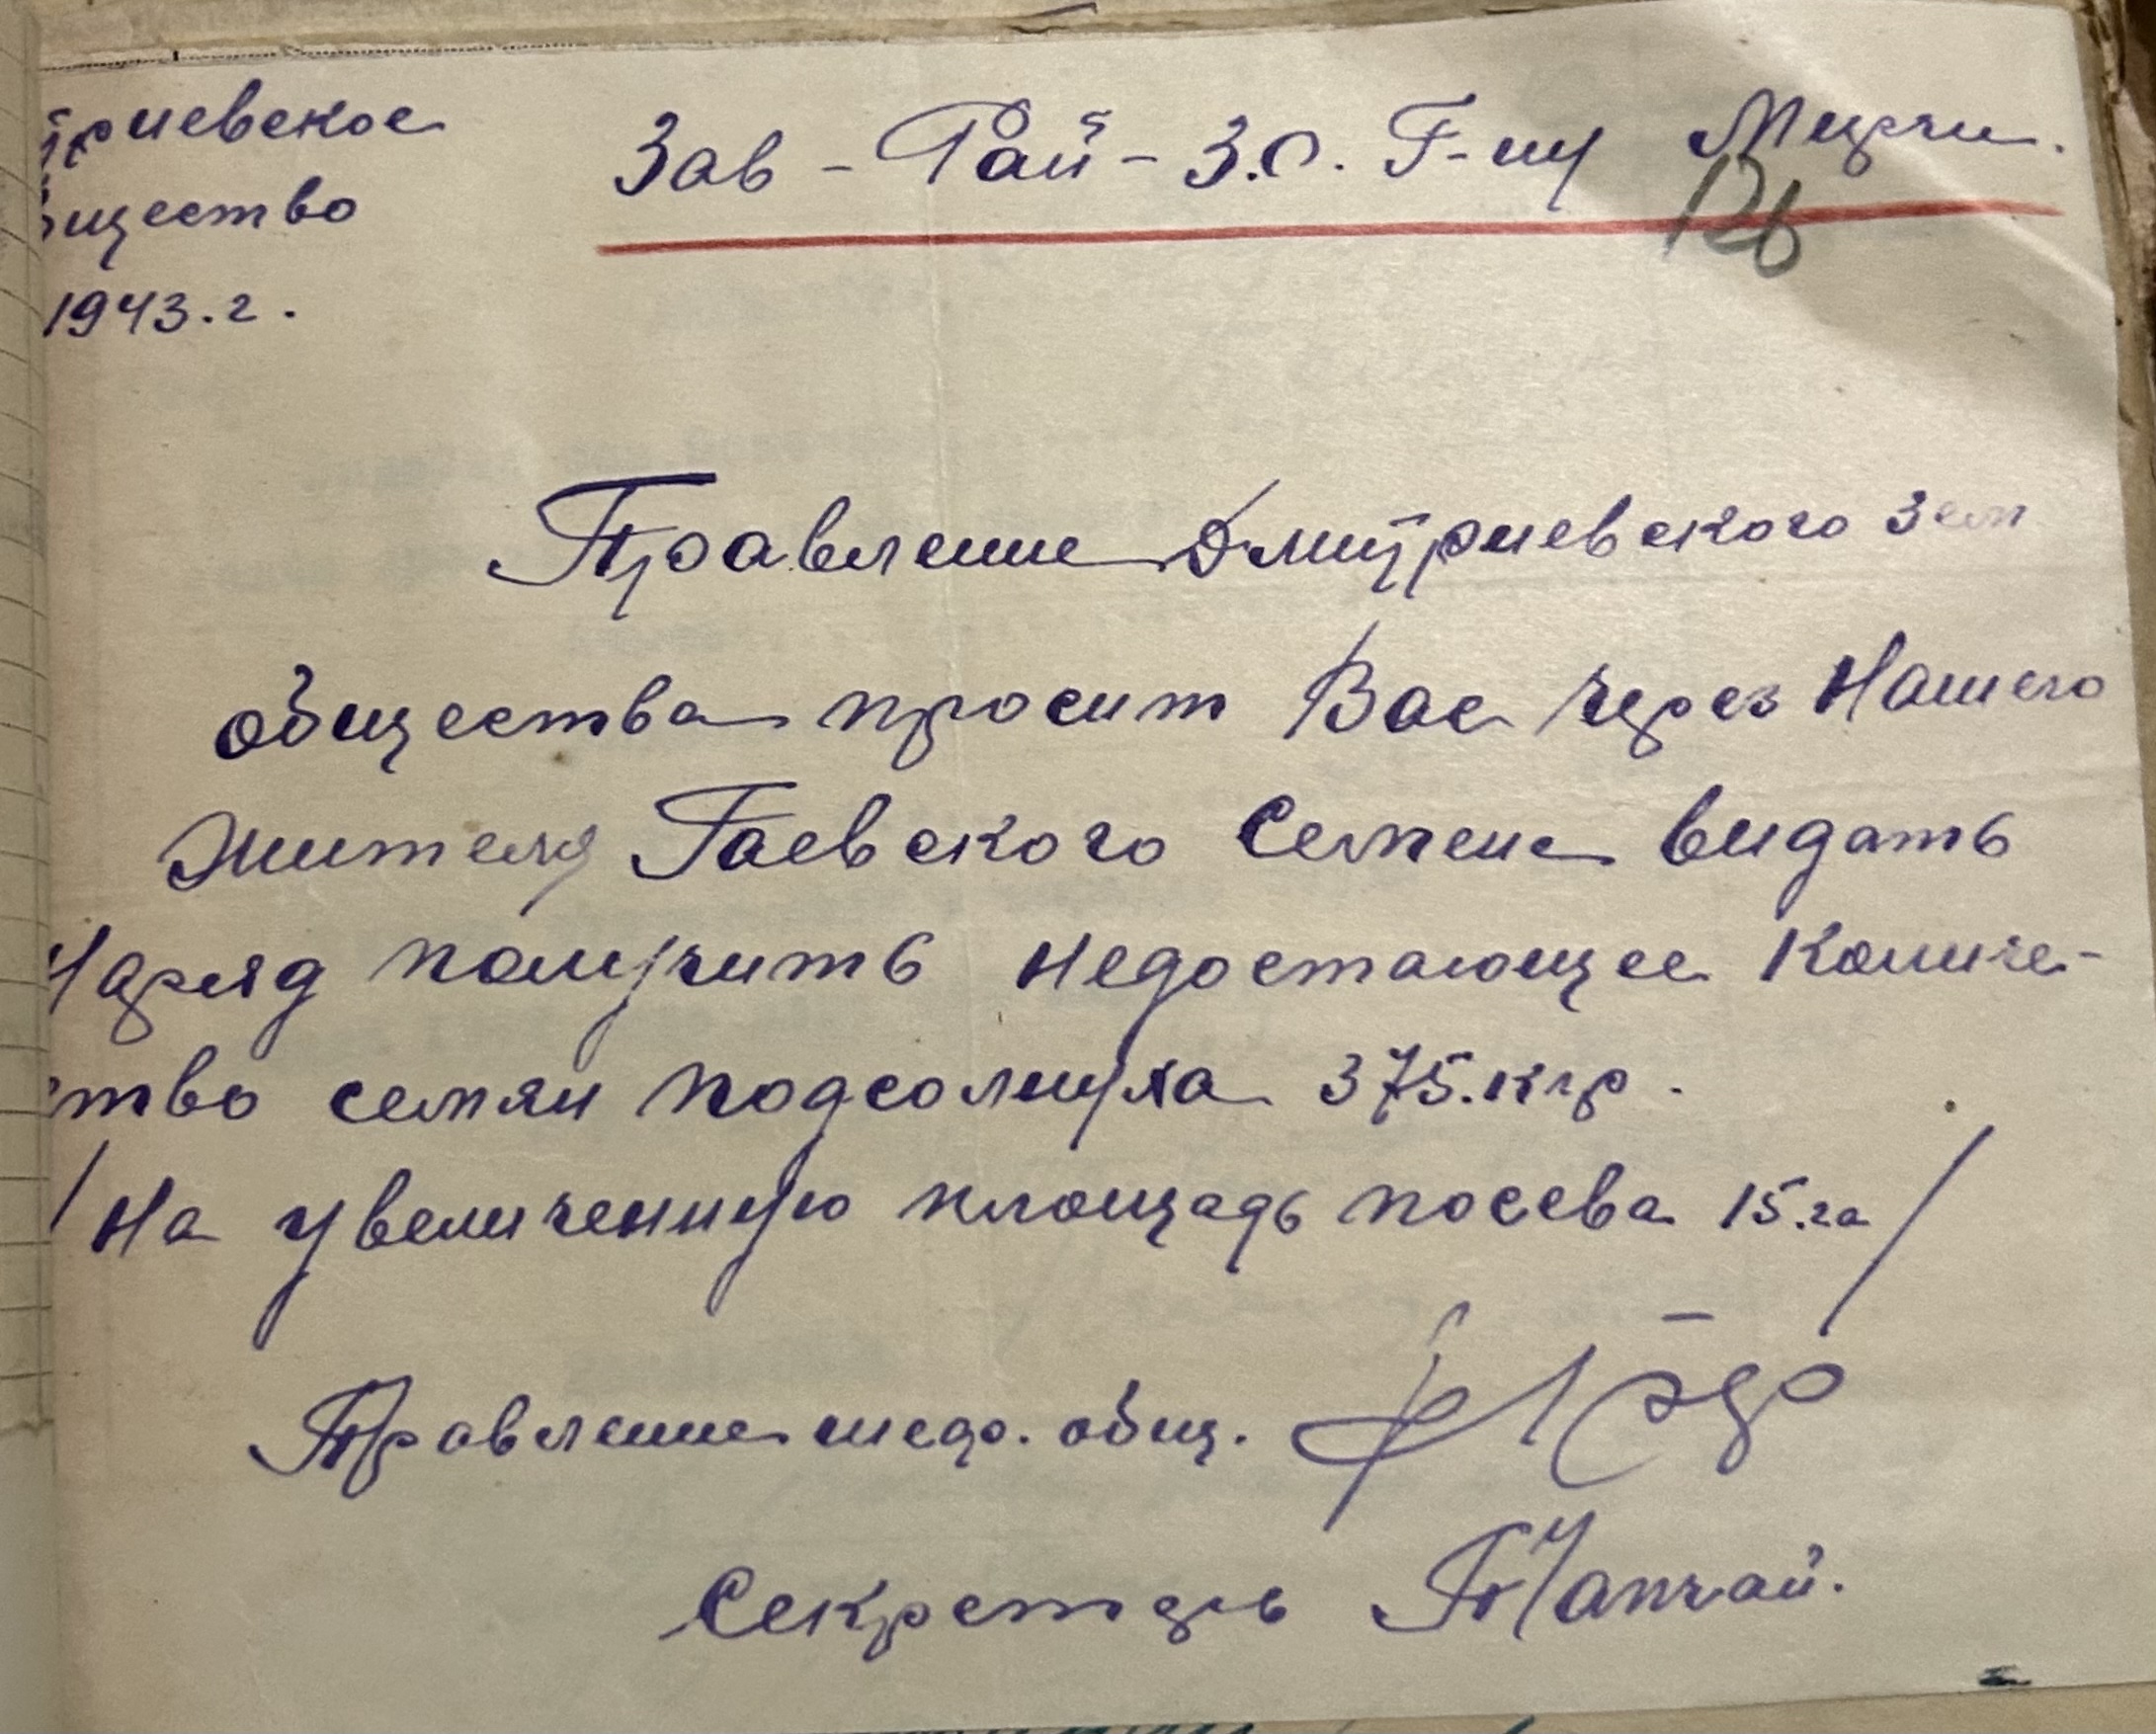 триевское
бщество
1943.г.
Зав - Рай - З.О. Г-ну
126
Правление Дмитриевского Зем
общества просит Вас через Нашего
жителя Гаевского Семена видать
Наряд получить недостающее количе-
ство семян подсолнуха 375.кгр.
/На увеличенную площадь посева 15.га/
Правление общ.
Секретарь